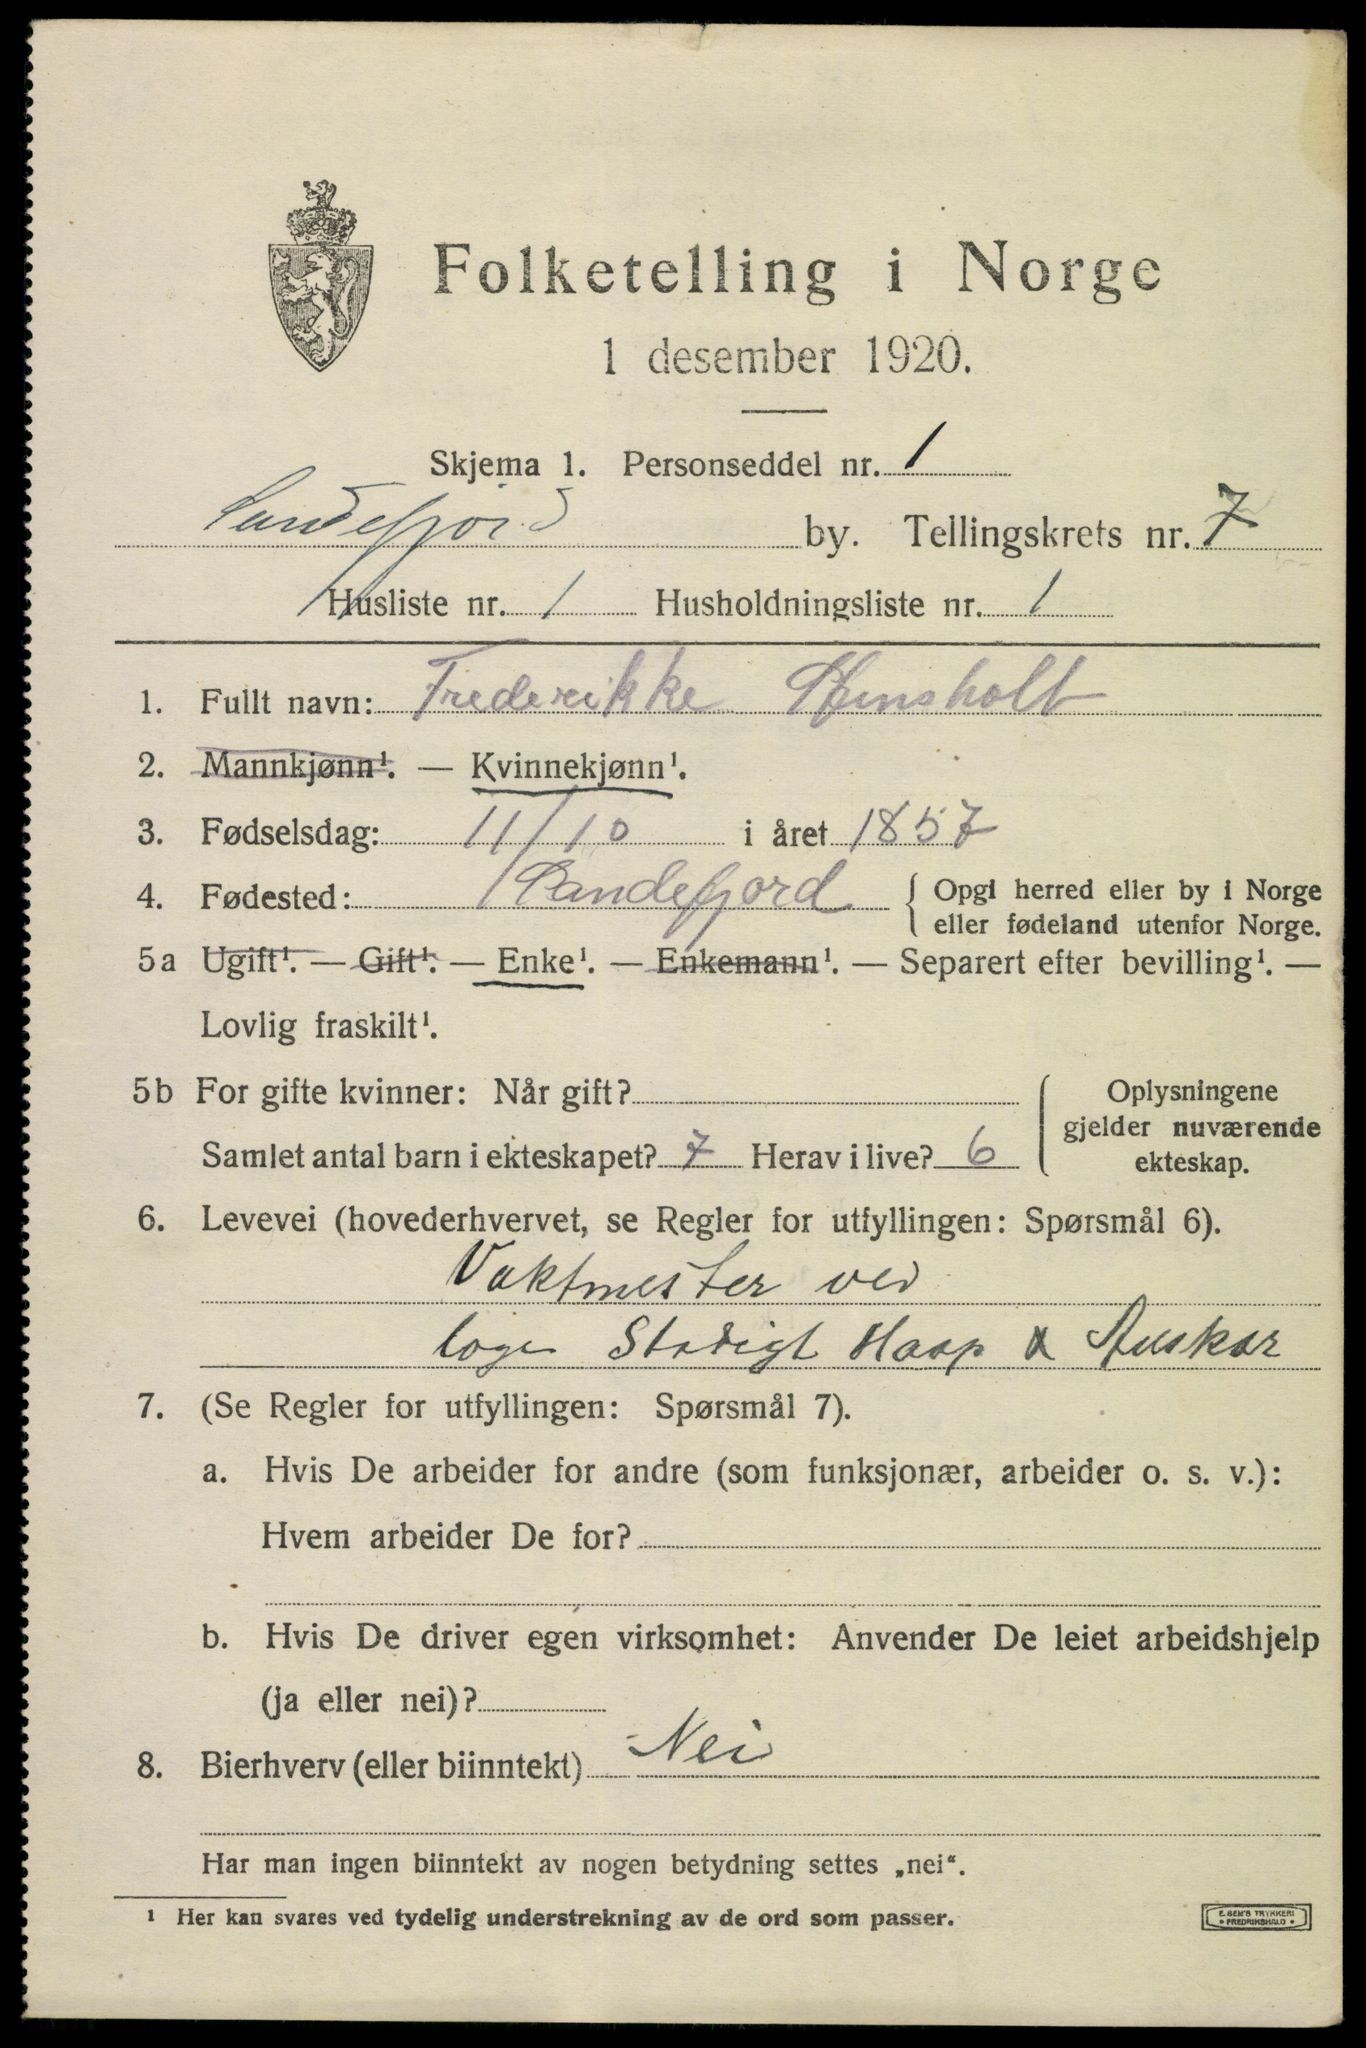 Folketelling i Norge
1 desember 1920.
Skjema 1. Personseddel nr. 1
Sandefjord by. Tellingskrets nr. 7
Husliste nr. 1 Husholdningsliste nr. 1
1. Fullt navn: Frederikke Stensholt
2. Mannkjønn¹. — Kvinnekjønn¹.
3. Fødselsdag: 11/10 i året 1857
4. Fødested: Sandefjord { Opgi herred eller by i Norge
eller fødeland utenfor Norge.
5a Ugift¹. — Gift¹. — Enke¹. — Enkemann¹. — Separert efter bevilling¹. —
Lovlig fraskilt¹.
5b For gifte kvinner: Når gift?
Oplysningene
gjelder nuværende
ekteskap.
Samlet antal barn i ekteskapet? 7 Herav i live? 6
6. Levevei (hovederhvervet, se Regler for utfyllingen: Spørsmål 6).
Vaktmester ved
loge Stadigt Haap &
7. (Se Regler for utfyllingen: Spørsmål 7).
a. Hvis De arbeider for andre (som funksjonær, arbeider o. s. v.):
Hvem arbeider De for?
b. Hvis De driver egen virksomhet: Anvender De leiet arbeidshjelp
(ja eller nei)?
8. Bierhverv (eller biinntekt) Nei
Har man ingen biinntekt av nogen betydning settes „nei“.
¹ Her kan svares ved tydelig understrekning av de ord som passer.
E. SEM'S TRYKKERI
• FREDRIKSHALD •